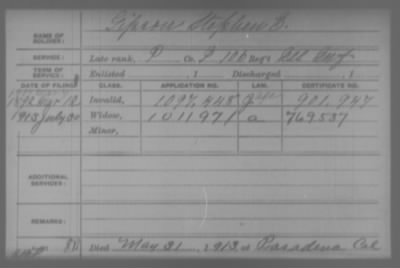 NAME OF SOLDIER: Gipson Stephen B.
SERVICE: Late rank, P Co. F 106 Reg't Ill Inf
TERM OF SERVICE: Enlisted , 1 Discharged , 1
DATE OF FILING. CLASS. APPLICATION NO. LAW. CERTIFICATE NO.
1892 Apr 12 Invalid, 1097.448 901.947
1913 July 30 Widow, 1011971 a 769537
Minor,
ADDITIONAL SERVICES:
REMARKS:
Died May 31, 1913 at Pasadena Cal